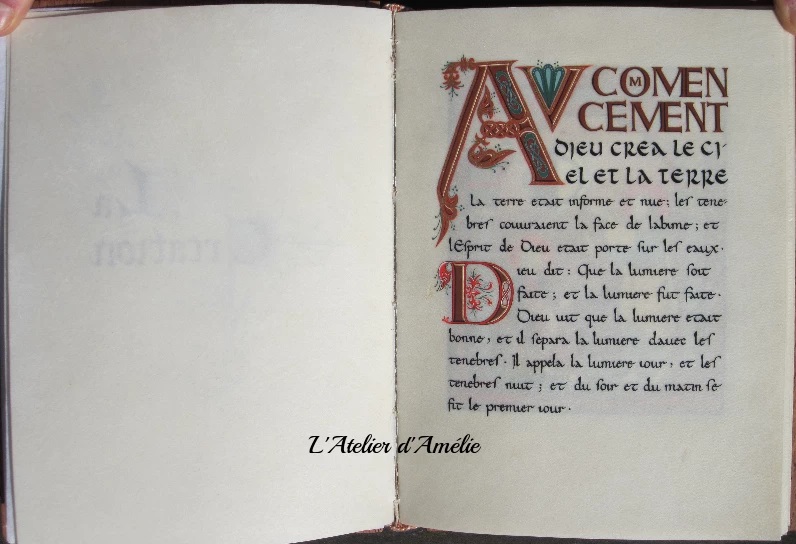 La
Création
AU COMMEN
CEMENT
DIEU CREA LE CI-
EL ET LA TERRE
La terre etait informe et nue; les tene-
bres couuraient la face de labime; et
lEsprit de Dieu etait porte sur les eaux.
Dieu dit: Que la lumiere soit
faite; et la lumiere fut faite.
Dieu uit que la lumiere etait
bonne, et il separa la lumiere dauec les
tenebres. Il appela la lumiere iour, et les
tenebres nuit; et du soir et du matin se
fit le premier iour.
L'Atelier d'Amélie